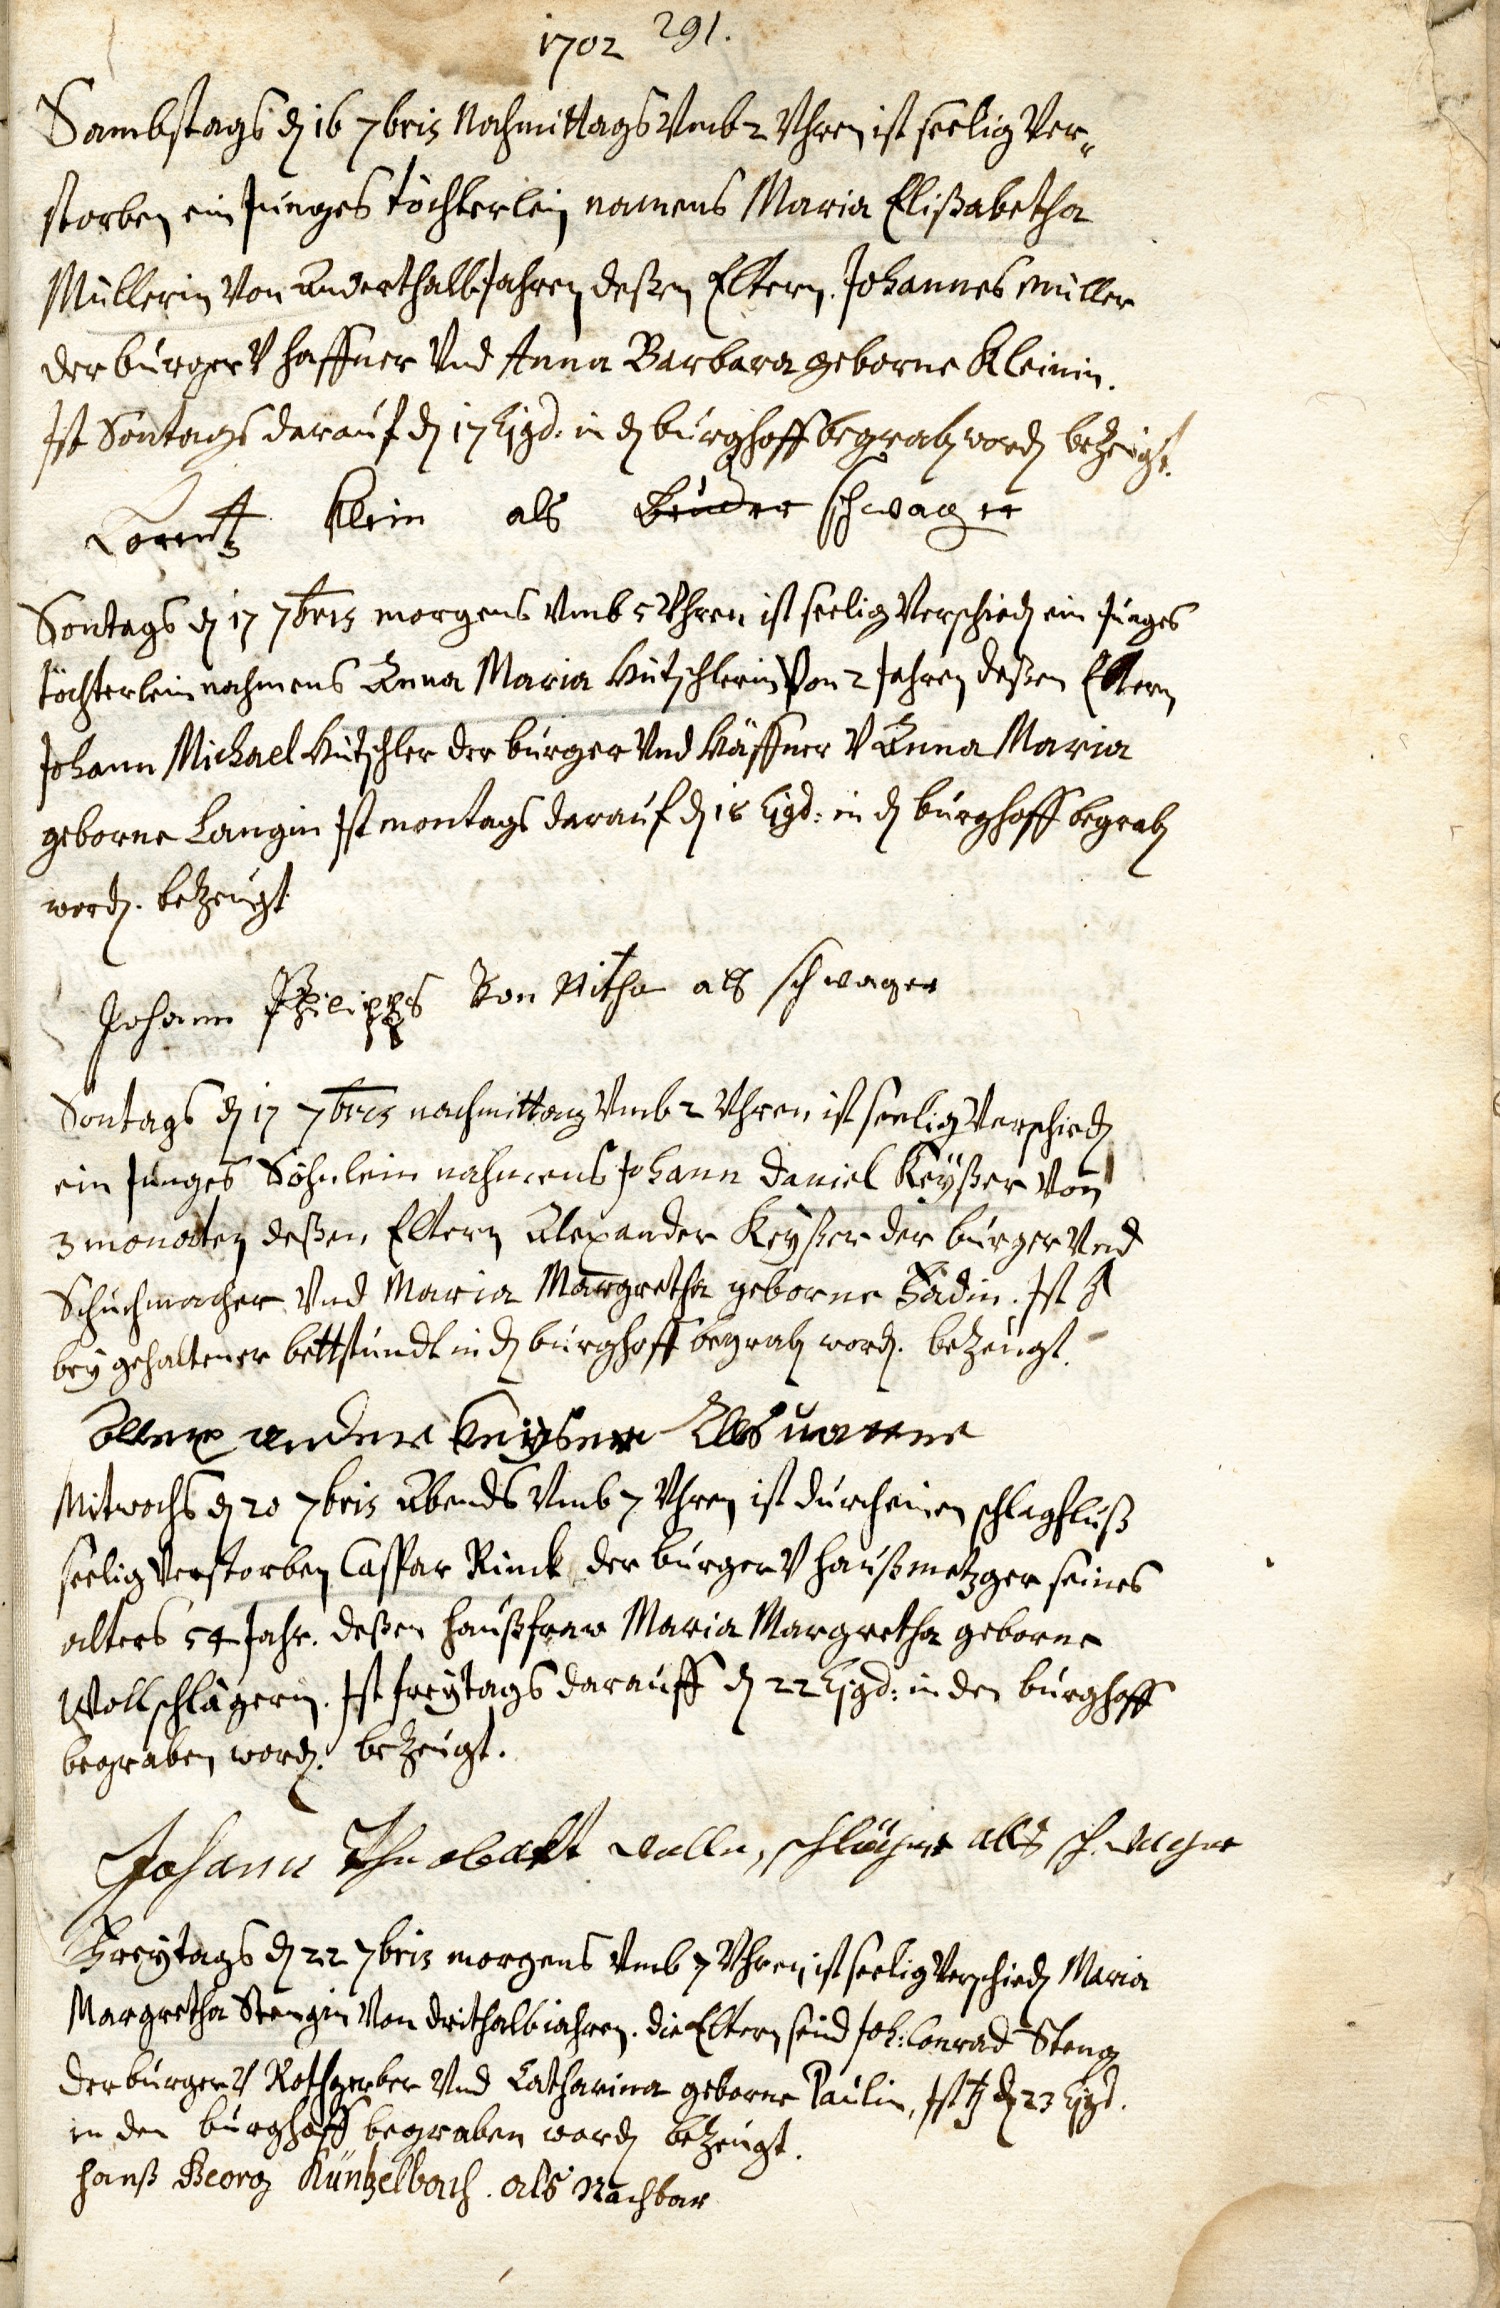 1702 291.
Sambstags d 16 7bris Nachmittags Vmb 2 Vhren ist seelig Ver-
storben ein Junges töchterlein namens Maria Elißabetha
Müllerin Von Anderthalb Jahren deßen Eltern. Johannes Müller
der burger V haffner Vnd Anna Barbara geborne Kleinin.
Ist Sontags darauf d 17 Ejgd: in d burghoff begrab word bezeugt.
Lorentz Klein als bruder schwager
Sontags d 17 7bris morgens Vmb 5 Vhren ist seelig Verschied ein Junges
töchterlein nahmens Anna Maria Hütschlerin Von 2 Jahren deßen Eltern
Johann Michael Hütschler der burger Vnd Häffner V Anna Maria
geborne Langin Ist montags darauf d 18 Ejgd: in d burghoff begrab
word. bezeugt
Johann Philipps Von als schwager
Sontags d 17 7bris nachmittag Vmb 2 Vhren ist seelig Verschied
ein Junges Söhnlein nahmens Johann Daniel Keÿßer Von
3 monaten deßen Eltern Alexander Keyßer der burger Vnd
Schuchmacher Vnd Maria Margretha geborne Ist
bey gehaltener bettstundt in d burghoff begrab word. bezeugt.
Allexander Keyser Als
Mitwochs d 20 7bris Abends Vmb 7 Vhren ist durch einen schlagfluß
seelig Verstorben Caspar Rinck der burger V haußmetzger seines
alters 54 Jahr. deßen haußfraw Maria Margretha geborne
Wollschlägerin. Ist freytags darauff d 22 Ejgd: in den burghoff
begraben word. bezeugt.
Johann wollenschläger als schwager
Freytags d 22 7bris morgens Vmb 7 Vhren ist seelig Verschied Maria
Margretha Stengin Von drithalb iahren. die Eltern seind Joh: Conrad Steng
der burger V Rothgerber Vnd Catharina geborne Paulin, Ist d 23 Ejgd.
in den burghoff begraben word bezeugt.
Hanß Georg Küntzelbach. als Nachbar